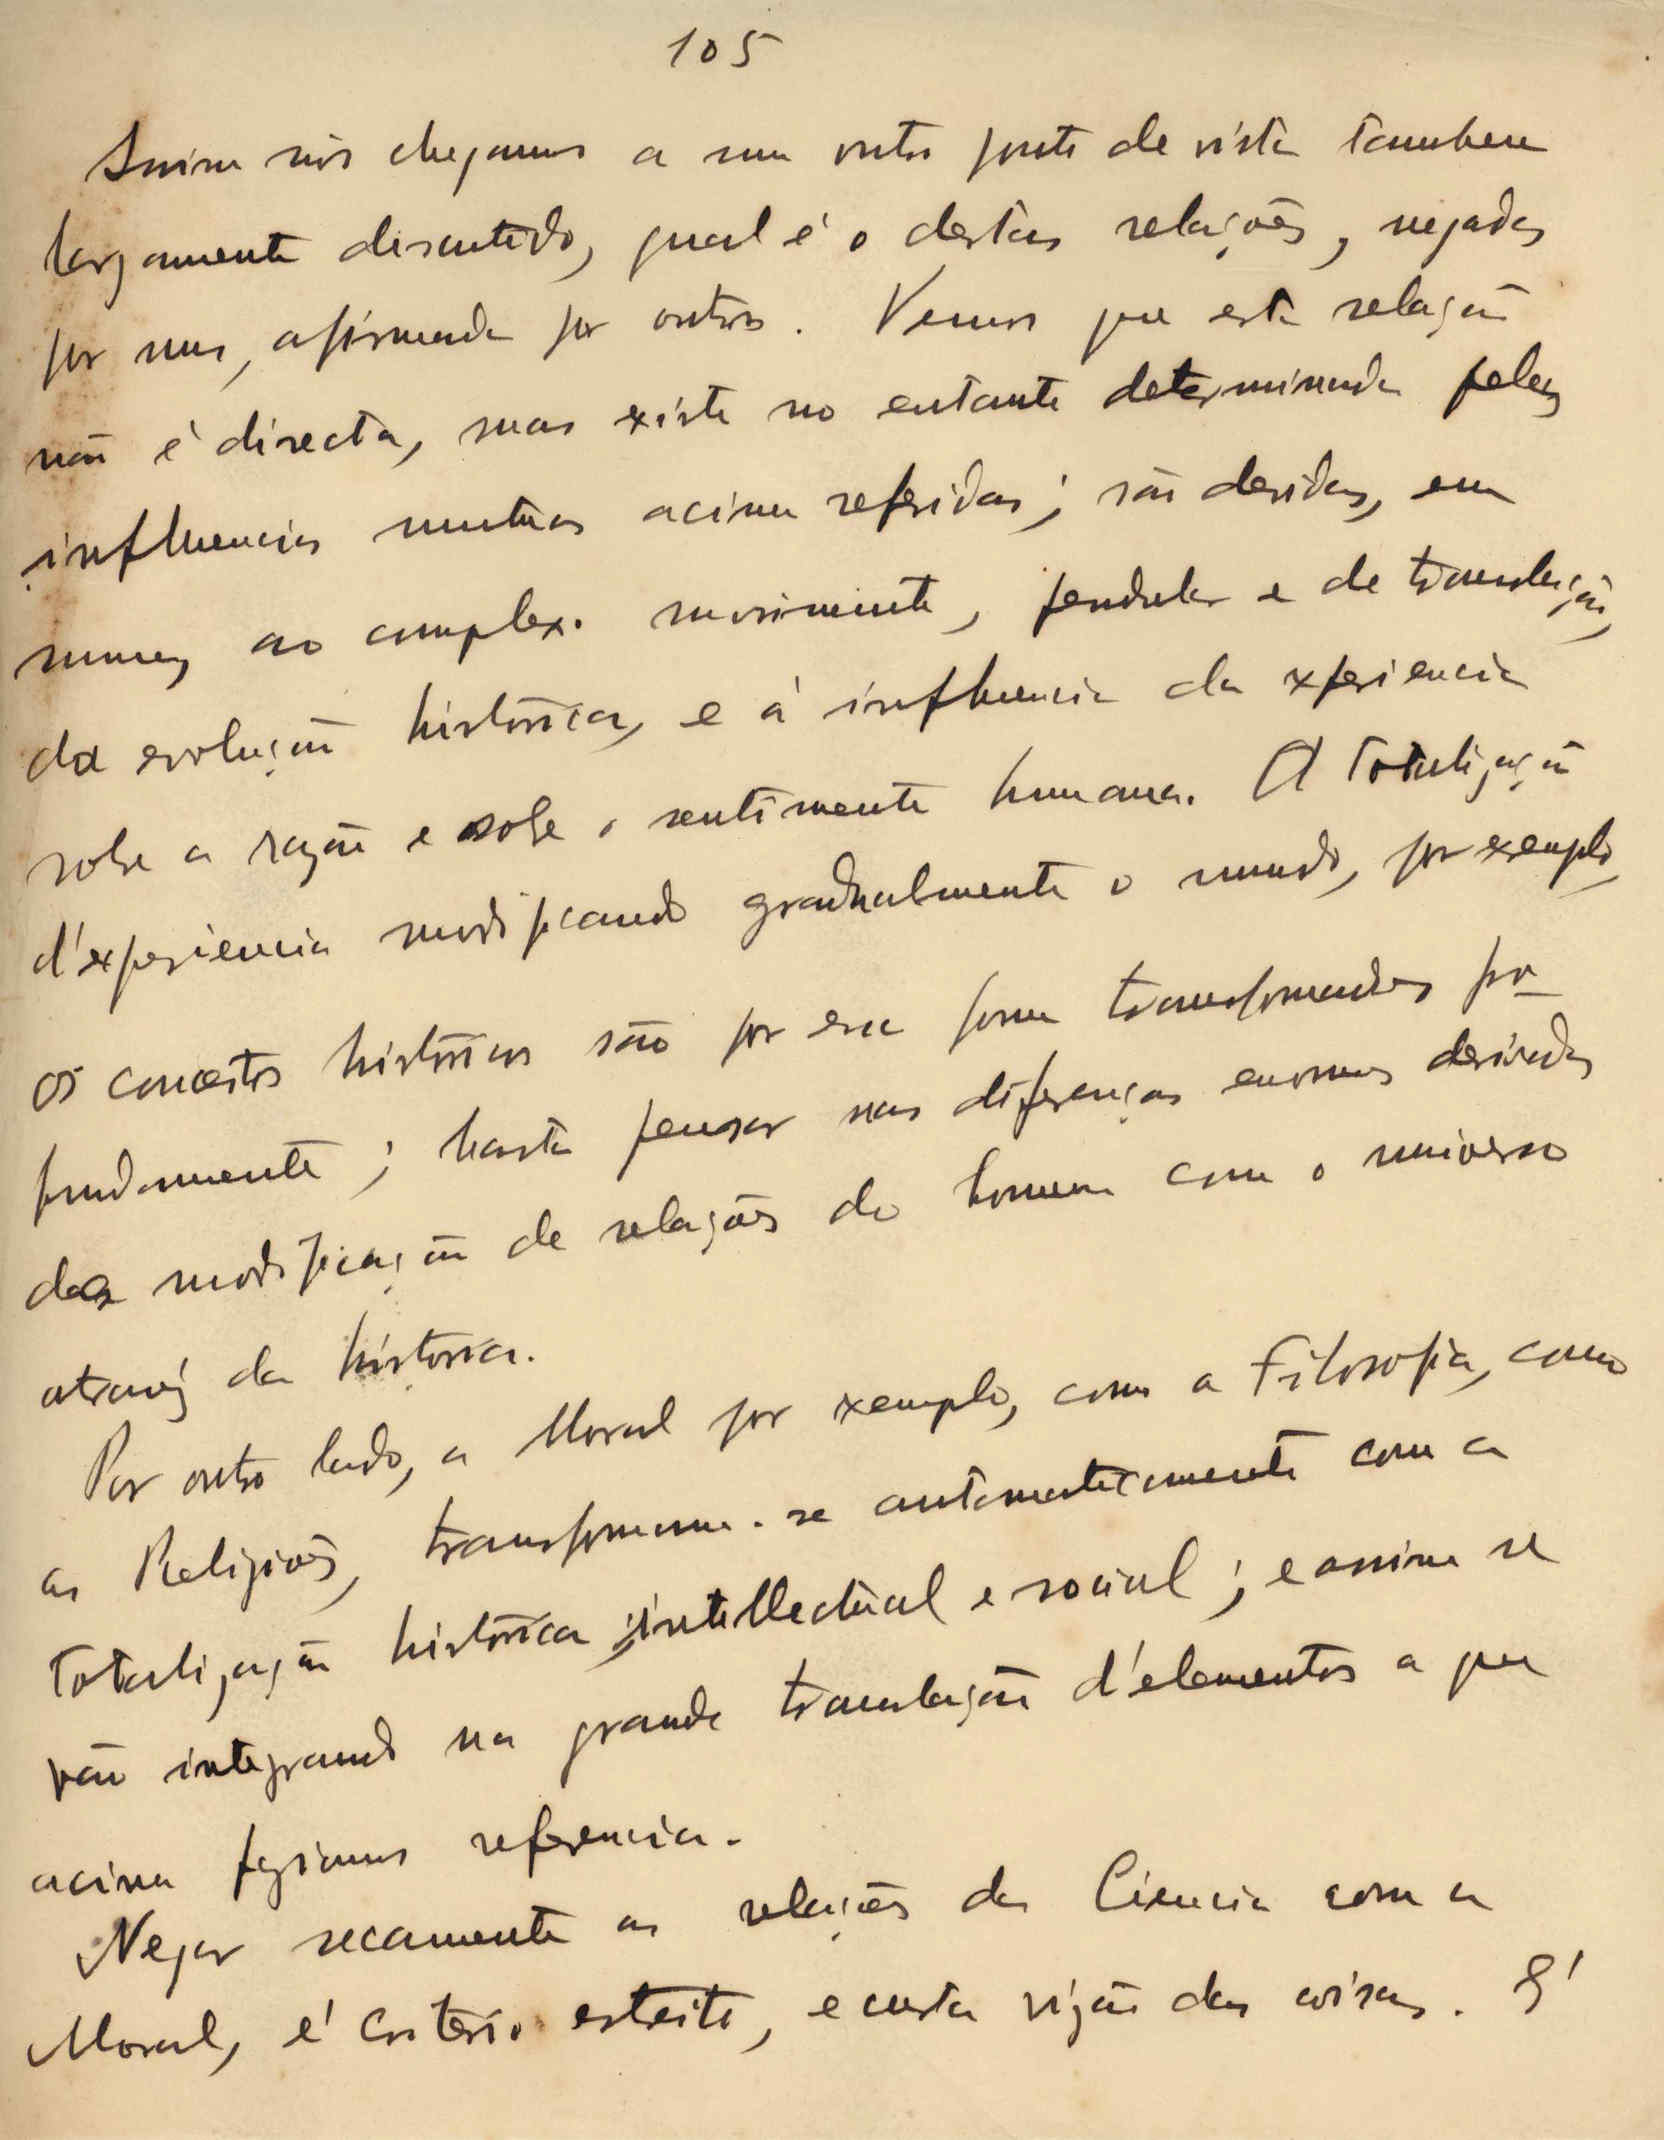 105
Assim nós chegamos a um outro ponto de vista tambem
largamente discutido, qual é o destas relações, negadas
por uns, afirmada por outros. Vemos que esta relação
não é directa, mas existe no entanto determinada pelas
influencias mutuas acima referidas; são devidas, em
suma, ao complexo movimento, pendular e de translação,
da evolução historica, e á influencia da experiencia
sobre a razão e sobre o sentimento humana. A totalização
d'experiencia modificando gradualmente o mundo, por exemplo,
os conceitos historicos são por essa forma transformados pro-
fundamente; basta pensar nas diferenças enormes derivadas
da modificação de relações do homem com o universo
através da historia.
Por outro lado, a Moral por exemplo, com a Filosofia, como
as Religiões, transformam-se automaticamente com a
totalização historica, intellectual e social; e assim se
vão integrando na grande translação d'elementos a que
acima fizemos referencia.
Negar secamente as relações da Ciencia com a
Moral, é criterio estreito, e curta visão das coisas. É